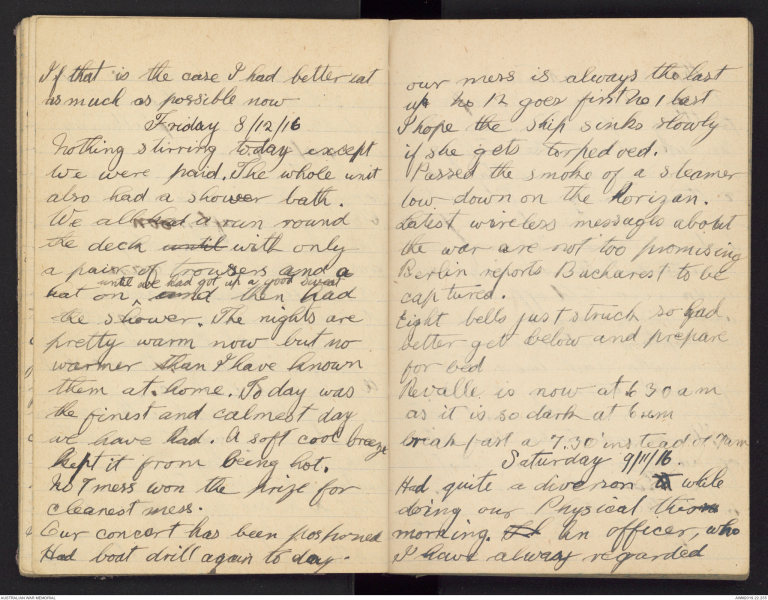 If that is the case I had better eat
as much as possible now
Friday 8/12/16
Nothing stirring today except
we were paid. The whole unit
also had a shower bath.
We all had a run round
the deck until with only
a pair of trousers and a
until we had got up a good sweat
hat on, and then had
the shower. The nights are
pretty warm now but no
warmer than I have known
them at home. To day was
the finest and calmest day
we have had. A soft cool breeze
kept it from being hot.
No 7 mess won the prize for
cleanest mess.
Our concert has been postponed
Had boat drill again to day.
our mess is always the last
up no 12 goes first no 1 last
I hope the ship sinks slowly
if she gets torpedoed.
Passed the smoke of a steamer
low down on the horizan.
Latest wireless messages about
the war are not too promising
Berlin reports Bacharest to be
captured.
Eight bells just struck so had
better get below and prepare
for bed
Revalle is now at 6 30 am
as it is so dark at 6 am
breakfast a 7.30 instead of 7am
Saturday 9/11/16.
Had quite a diverson while
doing our Physical this
morning. An officer, who
I have alway regarded
AUSTRALIAN WAR MEMORIAL